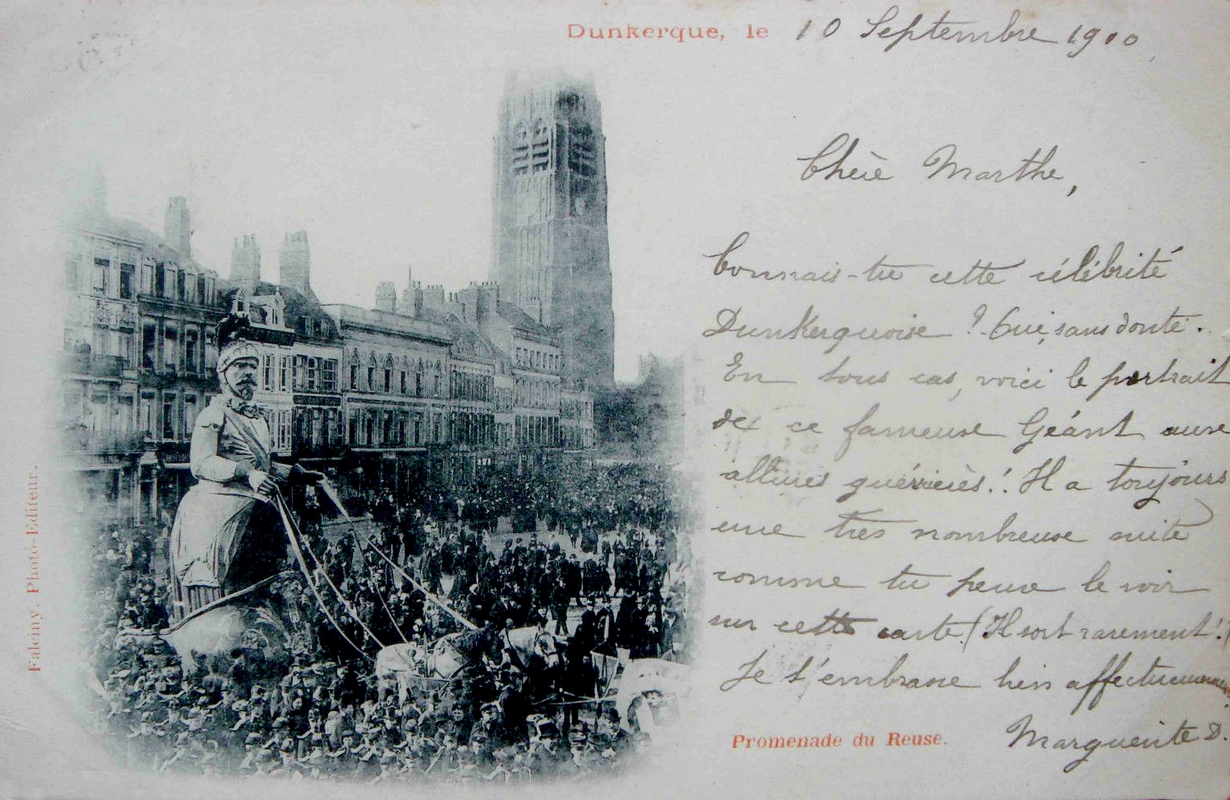 Dunkerque, le 10 Septembre 1910
Chère Marthe,
Connais-tu cette célébrité
Dunkerquoise ? Oui, sans doute.
En tous cas, voici le portrait
de ce fameuse Géant aux
allures guérières ! Il a toujours
une très nombreuse suite
comme tu peux le voir
sur cette carte (Il sort rarement !)
Je t'embrasse bien affectueusement
Marguerite D.
Promenade du Reuse.
Falciny, Photo-Editeur.